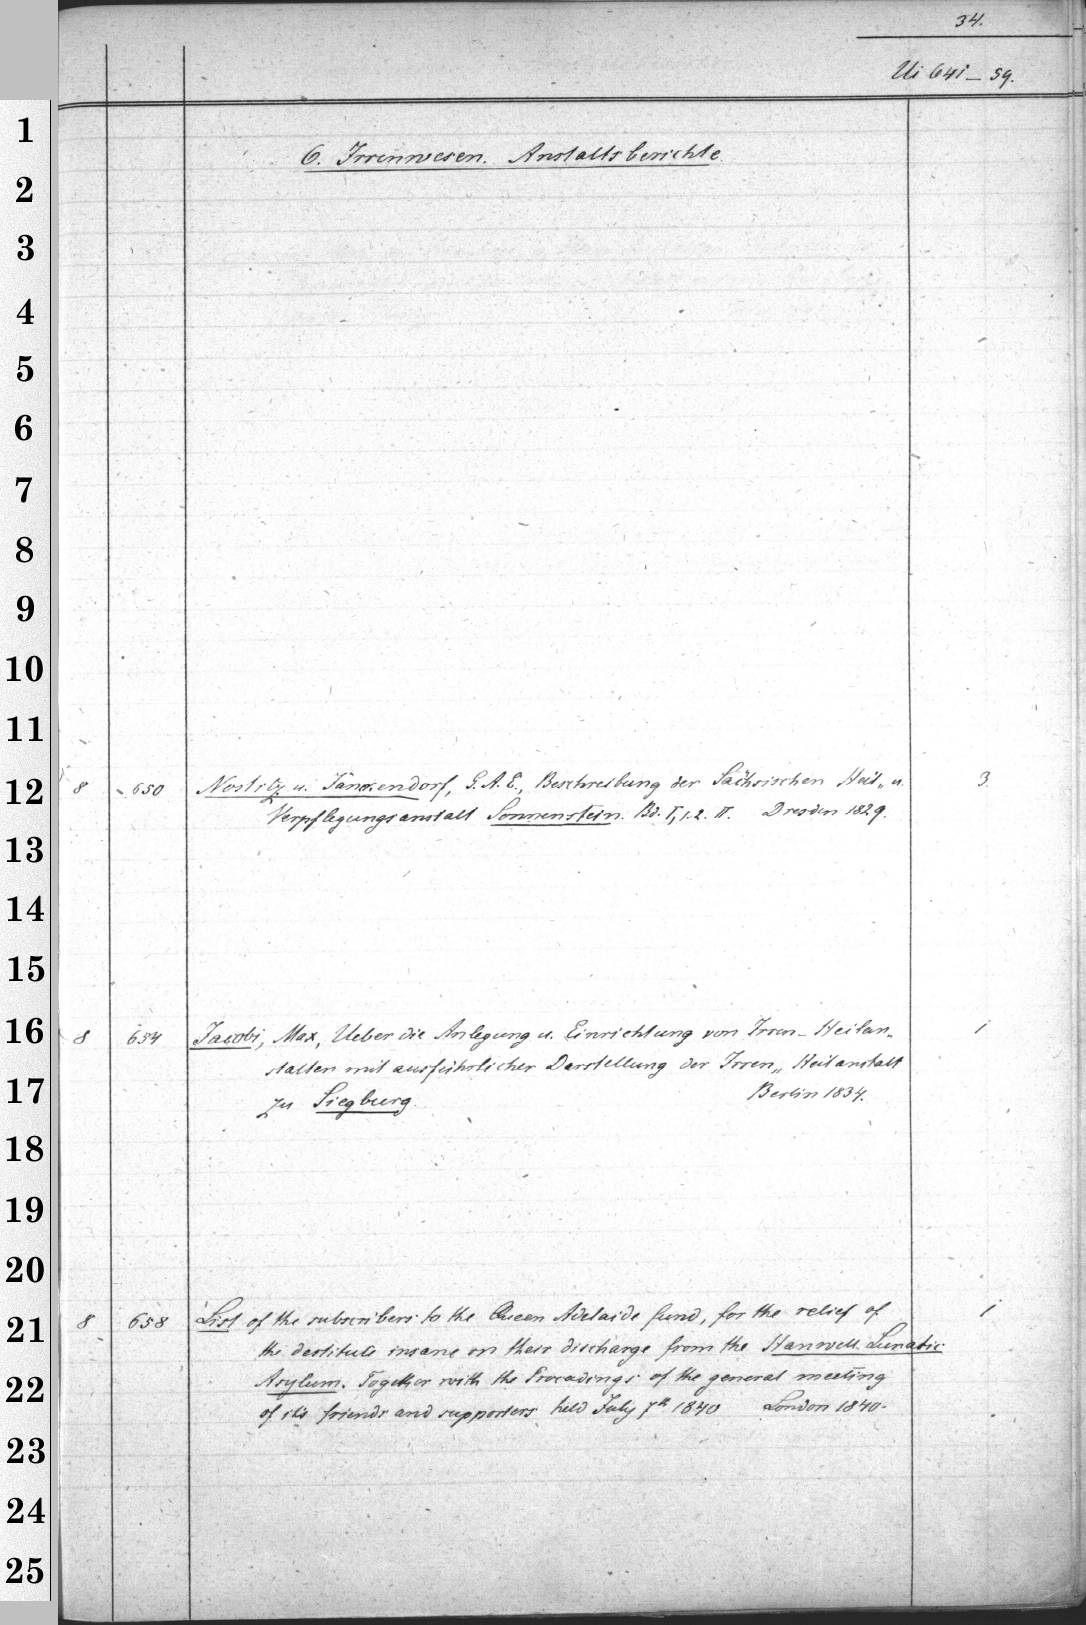 34.
Ui 641 – 59.
1
6. Irrenwesen. Anstaltsberichte
2
3
4
5
6
7
8
9
10
11
12
8 650 Nostitz u. Jänckendorf, G. A. E., Beschreibung der Sächsischen Heil- u. 3
Verpflegungsanstalt Sonnenstein. Bd. I, 1. 2. II. Dresden 1829.
13
14
15
16
8 654 Jacobi, Max, Ueber die Anlegung u. Einrichtung von Irren-Heilan- 1
stalten mit ausführlicher Darstellung der Irren-Heilanstalt
17
zu Siegburg. Berlin 1834.
18
19
20
21
8 658 List of the subscribers to the Queen Adelaide fund, for the relief of 1
the destitute insane on their discharge from the Hanwell Lunatic
22
Asylum. Together with the Proceedings of the general meeting
of its friends and supporters held July 7th 1840 London 1840.
23
24
25